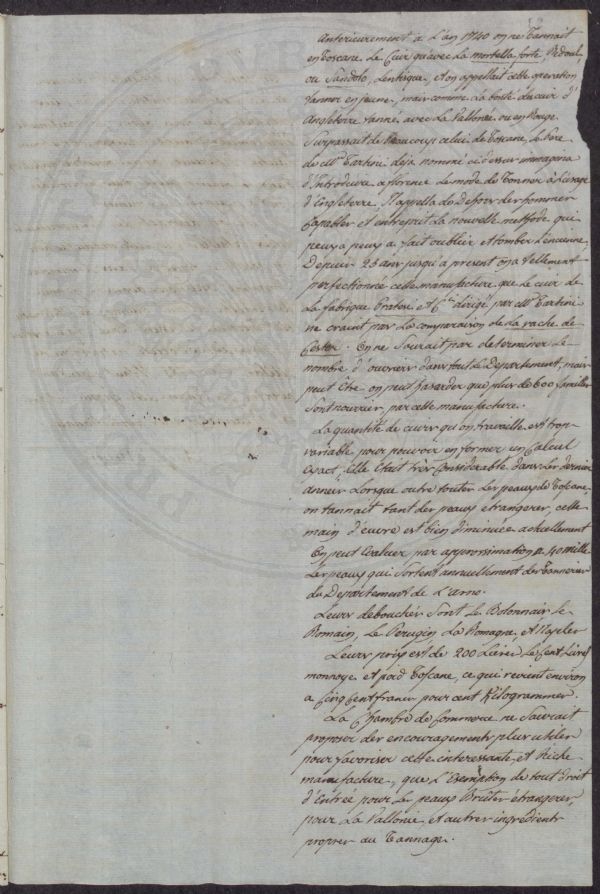 Anterieurement à L'an 1740 on ne Tannait
en Toscane Le Cuir qu'avec La mortella forte, Redoul,
ou Sundolo, Lentisque, et on appellait cette operation
tanner en jeune, mais comme La bonté du cuir d'
Angleterre tanné avec La Vallonée ou en Rouge
Surpassait de Beaucoup celui de Toscane, Le Pere
de Mr Tartini deja nommé ci dessus immagina
d'Introduire a florence Le mode de Tanner à L'usage
d'Engleterre. Il appella de Dehors des hommes
Capables et entreprit La nouvelle methode qui
peu a peu a fait oublier et tomber L'encienne
Depuis 25 ans jusqu'a present on a tellement
perfectionné cette manufacture que Le cuir de
La fabrique Pratesi et Cie dirigé par Mr Tartini
ne craint pas La comparaison de La vache de
On ne Sourait pas determiner Le
nombre d'ouvriers dans tout Le Departement, mais
peut être on peut hasarder que plus de 600 familles
Sont nourries par cette manufacture.
La quantité de cuirs qu'on travaille est trop
variable pour pouvoir en former un Calcul
exact; elle etait très Considerable dans Les dernieres
années Lorsque outre toutes Les peaux de Toscane,
on tannait tant des peaux etrangeres, cette
main d'euvre est bien diminuée actuellement
On peut evaluer par approssimation a 40 mille
Les peaux qui Sortent annuellement des Tanneries
du Departement de L'Arno.
Leurs debouchés Sont Le Bolonnais Le
Romain, Le Perugin La Romagne, et Naples
Leurs prix est de 200 Livres Le Cent Livres
monnoye et poid Toscane, ce qui revient environ
a Cinq Cent francs pour cent Kilogrammes.
La Chambre de Commerce ne Saurait
proposer des encouragements plus utiles
pour favoriser cette interessante et Riche
manufacture, que L'Exemption de tout Droit
d'Entrée pour Les peaux Brutes étrangeres,
pour La Vallonie et autres ingredients
propres au Tannage.